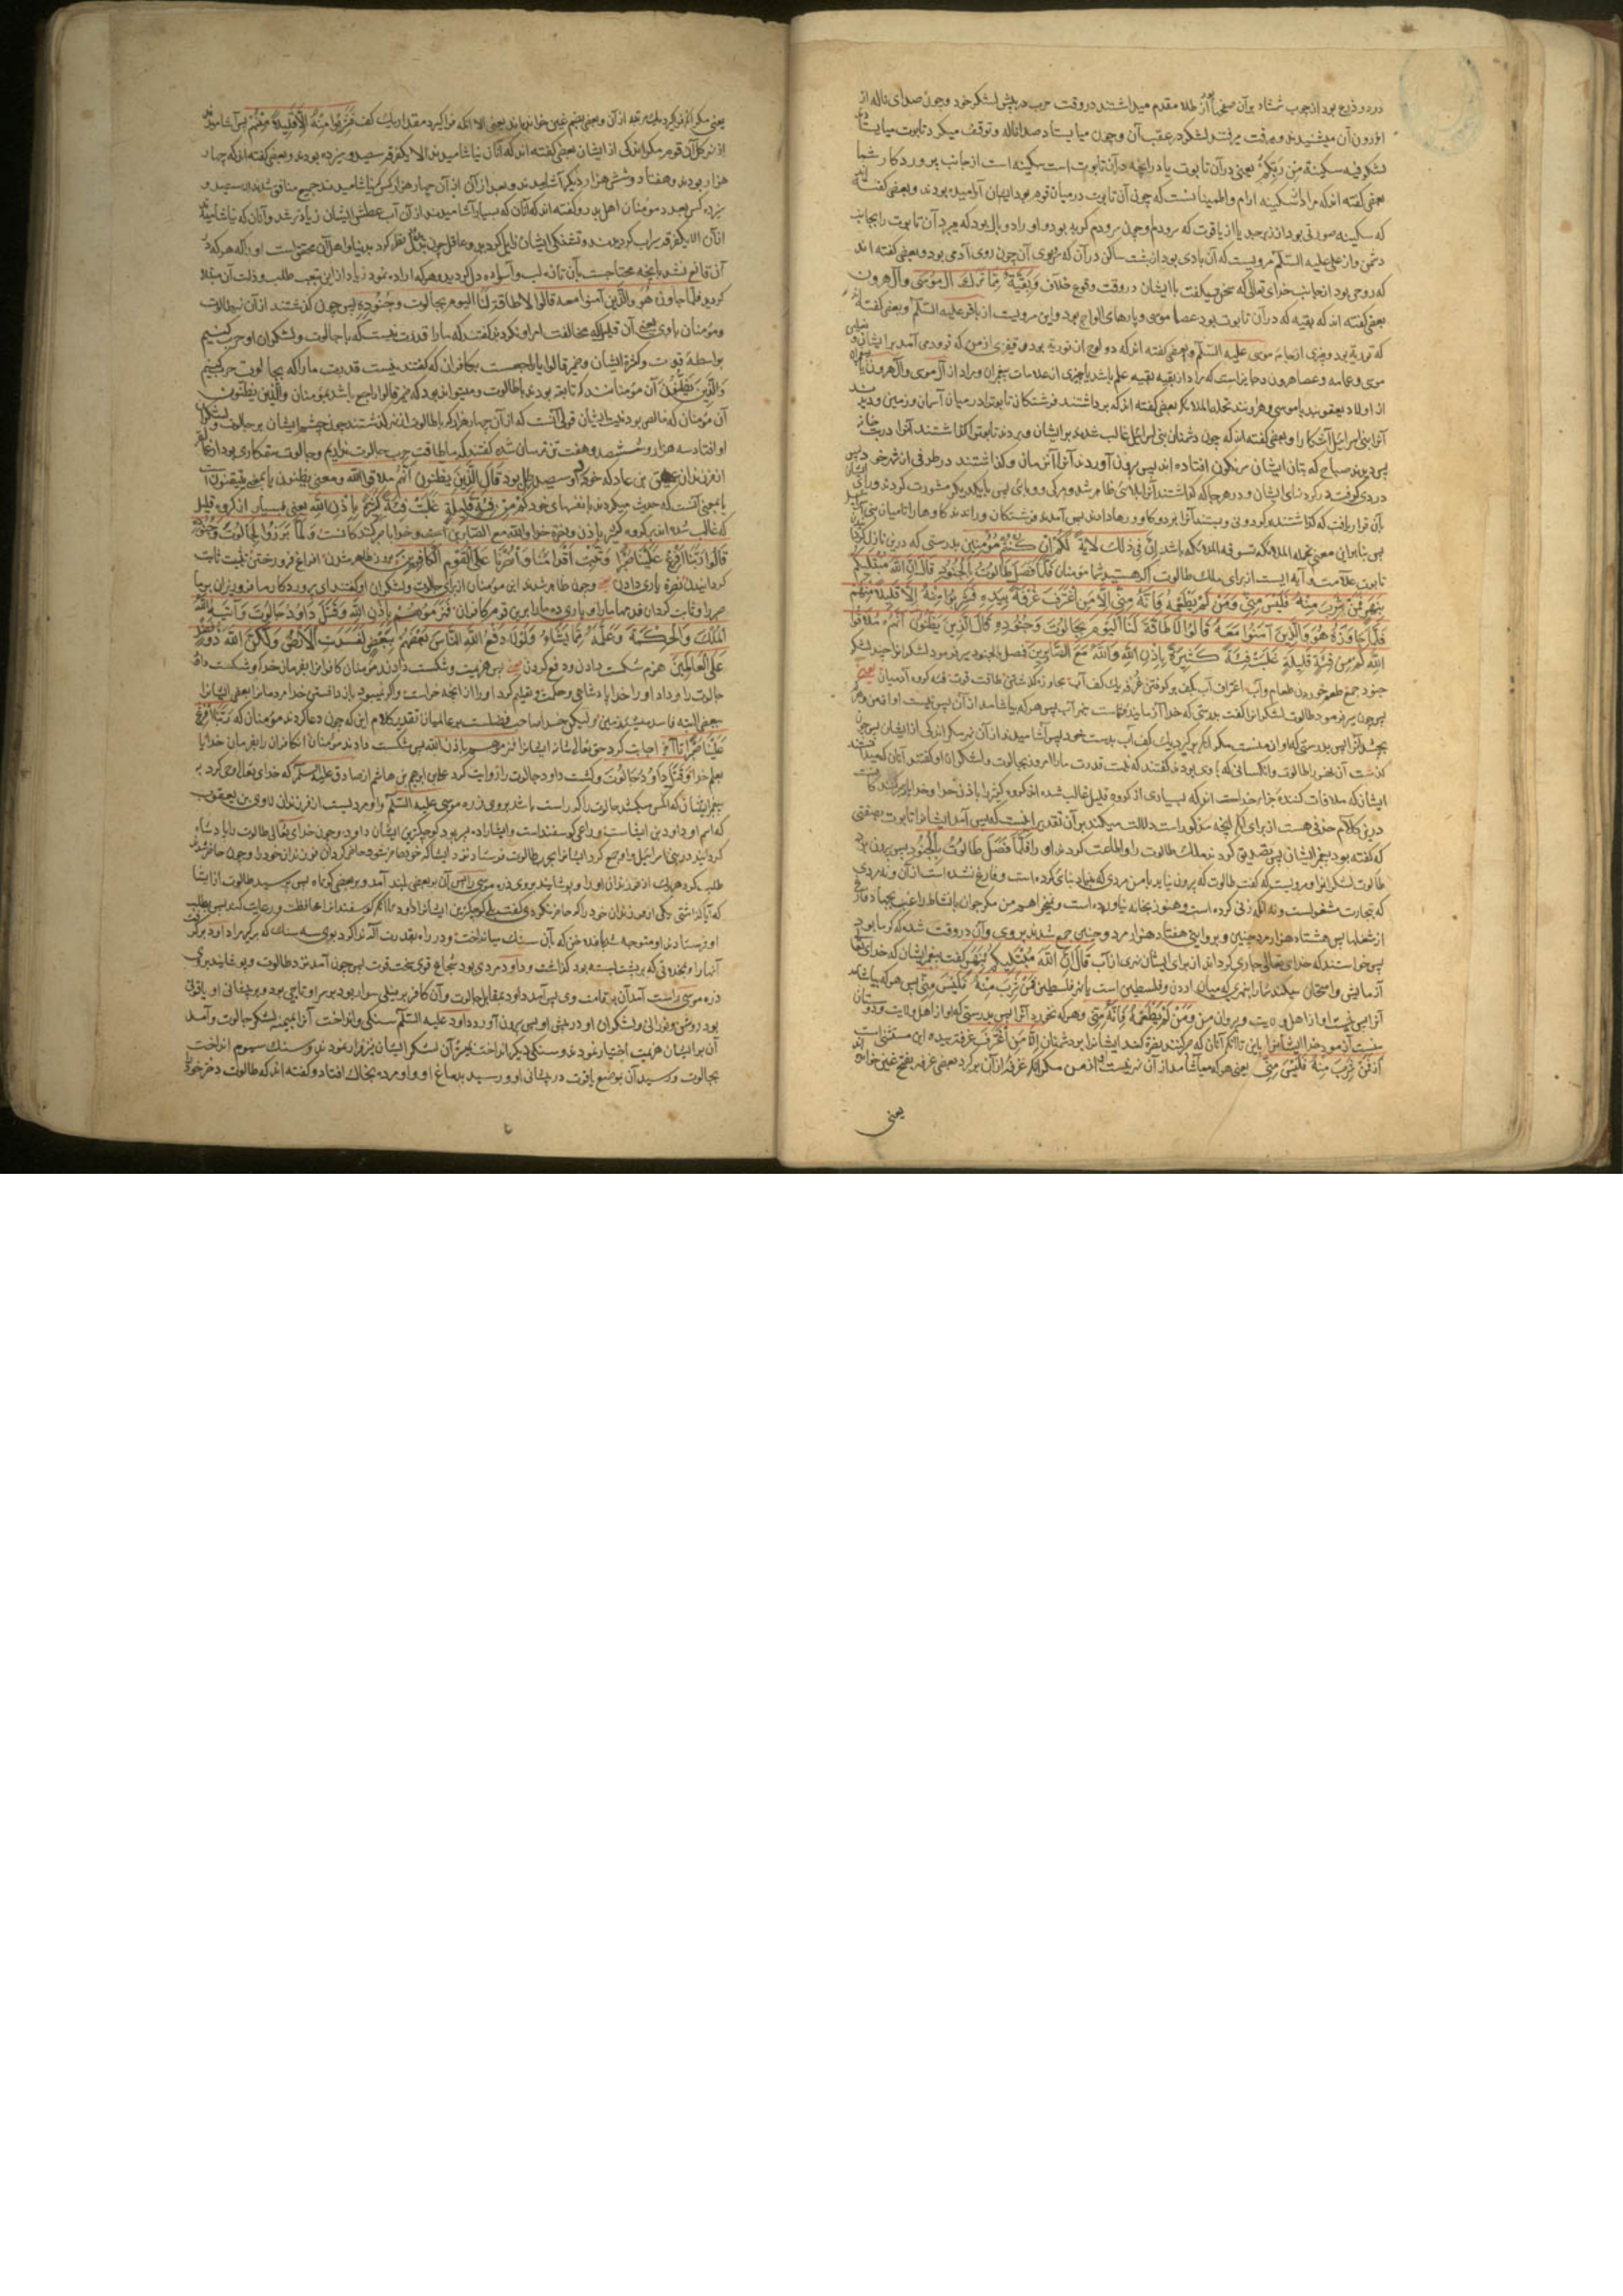 دو در و ذرع بود از چوب شمشاد بر آن صفحها از طلا مقدم میداشتند در وقت حرب در پیش لشکر خود و چون صدای ناله از
اندرون آن میشنیدند و میرفت میرفتند لشکر در عقب آن و چون میایستاد صدا و ناله و توقف میکرد تابوت میایستادند
لشکر فیه سکینة من ربکم یعنی در آن تابوت یا در آنچه در آن تابوت است سکینه است از جانب پروردکار شما
بعضی کفته اند که مراد از سکینه ارام و اطمینانست که چون آن تابوت در میان قوم بود ایشان آرامیده بودند و بعضی کفته
که سکینه صورتی بود از زبرجد یا از یاقوت که سرو دم وچون سرو دم کربه بود و او را دو بال بود که میبرد آن تابوت را بجانب
دشمن و از علی علیه السلم مرویست که آن بادی بود از بهشت ساکن در آن که روی آن چون روی آدمی بود و بعضی کفته اند
که روحی بود از جانب خدای تعالی که سخن میکفت با ایشان در وقت وقوع خلاف و بقیة مما ترک آل موسی و آل هرون
بعضی کفته اند که بقیه که در آن تابوت بود عصا موسی و پارهای الواح بود و این مرویست از باقر علیه السلم و بعضی کفته
که توریة بود و چیزی از جامه موسی علیه السلم و بعضی کفته اند که دو لوح از توریة بود و قفیزی از من که فرود می آمد بر ایشان و
موسی و عمامه و عصا هرون
از اولاد یعقوبند یا موسی و هارونند تحمله الملائکه بعضی کفته اند که برداشتند فرشتکان تابوت را در میان آسمان و زمین و دیدند
آنرا بنی اسرائیل آشکارا و بعضی کفته اند که چون دشمنان بنی اسرائیل غالب شدند بر ایشان و بردند تابوت را کذاشتند آنرا در بت خانه
پس دیدند صباح که بتان ایشان سرنکون افتاده اند پس بیرون آوردند آنرا و کذاشتند در طرفی از شهر خود
دردی کرفت در کردنهای ایشان و در هر جا که کذاشتند آنرا بلای ظاهر شد و مرک و وبای پس با یکدیکر مشورت کردند و رای
بآن قرار یافت که کذاشتند بر کردونی و بستند آنرا بر دو کاو و رها دادند پس آمدند فرشتکان و راندند کاوها را تا میان بنی
پس بنا براین معنی تحمله الملائکة تسوقه الملائکة باشد ان فی ذلک لایة لکم ان کنتم مؤمنین بدرستی که درین نازل
تابوت علامت و آیه ایست از برای ملک طالوت اکر هستید شما مؤمنان فلما فصل طالوت بالجنود قال ان الله مبتلیکم
بنهر فمن شرب منه فلیس منی و من لم یطعمه فانه منی الا من اغترف غرفة بیده فشربوا منه الا قلیلا منهم
فلما جاوزه هو والذین آمنوا معه قالوا لا طاقة لنا الیوم بجالوت و جنوده قال الذین یظنون انهم ملاقوا
الله کم من فئة قلیلة غلبت فئة کثیرة باذن الله والله مع الصابرین فصل بالجنود بیرون شد لشکر
جنود جمع طعم خوردن طعام و آب اغتراف آب بکف بر کرفتن غرفه یک کف آب مجاوزه کذشتن طاقت قوت فئه کروه آدمیان یعنی
پس چون بیرون نمود طالوت لشکر را کفت بدرستی که خدا آزماینده شماست بنهر آب پس هر که بیاشامد از آن پس نیست او از من و هر که
نچشد آنرا پس بدرستی که او از منست مکر آنکه بر کیرد یک کف آب بدست خود پس آشامیدند از آن نهر مکر اندکی از ایشان پس چون
کذشت آن نهر را طالوت و آنکسانی که با وی بودند کفتند که نیست قدرت ما را امروز بجالوت و لشکر او کفتند آنان که
ایشان که ملاقات کننده جزاء خداست اند که بسیاری از کروه قلیل غالب شده اند کروه کثیر را باذن خدا و خدا
درین کلام حذفی هست از برای آنکه آنچه مذکور است دلالت میکند بر آن تقدیر اینست که پس آمد ایشانرا تابوت بصفتی
که کفته بود پیغمبر ایشان پس تصدیق کردند ملک طالوت را و اطاعت کردند او را فلما فصل طالوت بالجنود پس بیرون برد
طالوت لشکر انرا و مرویست که کفت طالوت که بیرون نیاید با من مردی که بنیاد بنای کرده است و فارغ نشده است از آن و نه مردی
که بتجارت مشغولست و نه آنکه زنی کرده است و هنوز بخانه نیاورده است و نمیخواهم من مکر جوان با نشاط راغب بجهاد
از شغلها پس هشتاد هزار مرد چنین و بروایتی هفتاد هزار مرد چنین جمع شدند بر وی و آن در وقت شد که کرما بود
پس خواستند که خدای تعالی جاری کرداند از برای ایشان نهری از آب قال ان الله مبتلیکم بنهر کفت پیغمبر ایشان که خدای تعالی
آزمایش و امتحان میکند شما را بنهری که میان اردن و فلسطین است یا نهر فلسطین فمن شرب منه فلیس منی پس هر که بیاشامد
آنرا پس نیست او از اهل ولایت و پیروان من و من لم یطعمه فانه منی و هر که نخورد آنرا پس بدرستی که او از اهل ولایت و دوستان
منست آزمود خدا ایشانرا باین تا آنکه آنان که صبر کنند نصرة کند ایشانرا بر دشمنان الا من اغترف غرفة بیده این مستثنی است
از فمن شرب منه فلیس منی یعنی هر که بیاشامد از آن نهر نیست از من مکر آنکه غرفه از آن بر کیرد بعضی غرفه بفتح غین خوانده
یعنی
یعنی مکر آنکه فرا کیرد یک مرتبه از آن و بعضی بضم غین خوانده اند یعنی الا آنکه فرا کیرد مقدار یک کف فشربوا منه الا قلیلا منهم پس آشامیدند
از نهر کل آن قوم مکر اندکی از ایشان بعضی کفته اند که آنان نیاشامیدند الا یک غرفه سیصد و سیزده بودند و بعضی کفته اند که چهار
هزار بودند و هفتاد و شش هزار دیکر آشامیدند و بعد از آن از آن چهار هزار کس که نیاشامیدند جمیع منافق شدند الا سیصد و
سیزده کس بعدد مؤمنان اهل بدر و کفته اند که آنان که بسیار آشامیدند از آن آب عطش ایشان زیاده تر شد و آنان که نیاشامیدند
از آن الا یک غرفه سیراب کردیدند و تشنکی ایشان زایل کردید و عاقل چون نظر کرد بدنیا و اهل آن محقق است او را که هر که
آن قانع نشد بآنچه محتاجست بآن تازه لب و آسوده دل کردید و هر که اراده نمود زیاد از این بتعب طلب و ذلت آن مبتلا
کردید فلما جاوزه هو والذین آمنوا معه قالوا لا طاقة لنا الیوم بجالوت و جنوده پس چون کذشتند از آن نهر طالوت
و مؤمنان با وی یعنی آن قلیل که مخالفت امر او نکردند کفتند که ما را قدرت نیست که با جالوت و لشکر او حرب کنیم
بواسطه قوت و کثرة ایشان و ضمیر قالوا یا راجعست بکافران که کفتند نیست قدرت ما را که بجالوت حرب کنیم
والذین یظنون آن مؤمنانند که ثابت بودند با طالوت و میتواند بود که ضمیر قالوا راجع باشد بمؤمنان والذین یظنون
آن مؤمنان که خالص بودند در ایمان قولی آنست که از آن چهار هزار که با طالوت از نهر کذشتند چون چشم ایشان بر جالوت و لشکر
او افتاد سه هزار و ششصد و هشت تن ترسان شده کفتند که ما طاقت حرب جالوت نداریم و جالوت ستمکاری بود از عمالقه
از فرزندان عملیق بن عاد که خود او سیصد رطل بود قال الذین یظنون انهم ملاقوا الله و معنی یظنون یا بمعنی یتیقنون است
یا بمعنی آنست که حدیث میکردند با نفسهای خود کم من فئة قلیلة غلبت فئة کثیرة باذن الله یعنی بسیار از کروه قلیل
که غالب شده اند بر کروه کثیر باذن و نصرة خدا والله مع الصابرین و لما برزوا لجالوت و جنوده
قالوا ربنا افرغ علینا صبرا و ثبت اقدامنا وانصرنا علی القوم الکافرین بروز ظاهر شدن افراغ فرو ریختن تثبیت ثابت
کردانیدن نصرة یاری دادن یعنی و چون ظاهر شدند این مؤمنان از برای جالوت و لشکر او کفتند ای پروردکار ما فرو ریز بر ما
صبر را و ثابت کردان قدمهای ما را و یاری ده ما را بر این قوم کافران فهزموهم باذن الله و قتل داود جالوت و آتیه الله
الملک والحکمة و علمه مما یشاء و لولا دفع الله الناس بعضهم ببعض لفسدت الارض و لکن الله ذو فضل
علی العالمین هزم شکست دادن دفع کردن یعنی پس هزیمت و شکست دادند مؤمنان کافرانرا بفرمان خدا و کشت داود
جالوت را و داد او را خدا پادشاهی و حکمت و تعلیم کرد او را از آنچه خواست و اکر نمیبود باز داشتن خدا مردمانرا بعضی ایشانرا
ببعضی البته فاسد میشد زمین ولیکن خدا صاحب فضلست بر عالمیان تقدیر کلام این که چون دعا کردند مؤمنان که ربنا افرغ
علینا صبرا تا آخر اجابت کرد حق تعالی دعاء ایشانرا فهزموهم باذن الله پس شکست دادند مؤمنان آن کافران را بفرمان خدا یا
بعلم خدا و قتل داود جالوت و کشت داود جالوت را روایت کرد علی ابرهیم بن هاشم از صادق علیه السلم که خدای تعالی وحی کرد به
پیغمبر ایشان که آنکس میکشد جالوت را که راست باشد بر وی زره موسی علیه السلم و او مردیست از فرزندان لاوی بن یعقوب
که اسم او داود بن ایشاست و راعی کوسفند است و ایشا را ده پسر بود کوچکترین ایشان داود و چون خدای تعالی طالوت را پادشاه
کردانید در بنی اسرائیل و او جمع کرد ایشانرا بحرب جالوت فرستاد نزد ایشا که خود حاضر شود و حاضر کردان فرزندان خود را و چون حاضر شدند
طلب کرد هر یک از فرزندان او را و پوشانید بر وی زره موسی را پس آن بر بعضی بلند آمد و بر بعضی کوتاه پس پرسید طالوت از ایشا
که آیا کذاشتی یکی از فرزندان خود را که حاضر نکردی کفت بلی کوچکترین ایشانرا داود را کذاشتم که کوسفندانرا محافظت و رعایت کند پس بطلب
او فرستادند او متوجه شد که بآن سنک میانداخت و در راه بقدرت آله ندا کرد بوی سه سنک که بر کیر ما را داود بر کرفت
آنها را و بخدونی که بر پشت بسته بود کذاشت و داود مردی بود شجاع قوی سخت قوت پس چون آمد نزد طالوت و پوشانید بر وی
زره موسی راست آمد آن بر قامت وی پس آمد داود بمقابل جالوت و آن کافر بر پیلی سوار بود بر سر او تاجی بود و بر پیشانی او یاقوتی
بود روشن و نورانی و لشکر او در پیش او پس بیرون آورد داود علیه السلم سنکی و انداخت آنرا بمیمنه لشکر جالوت و آمد
آن بر ایشان هزیمت اختیار نمودند و سنکی دیکر انداخت بمیسره آن لشکر ایشان نیز فرار نمودند و سنک سیوم انداخت
بجالوت و رسید آن بموضع یاقوت در پیشانی او و رسید بدماغ او و او مرده بخاک افتاد و کفته اند که طالوت دختر خود